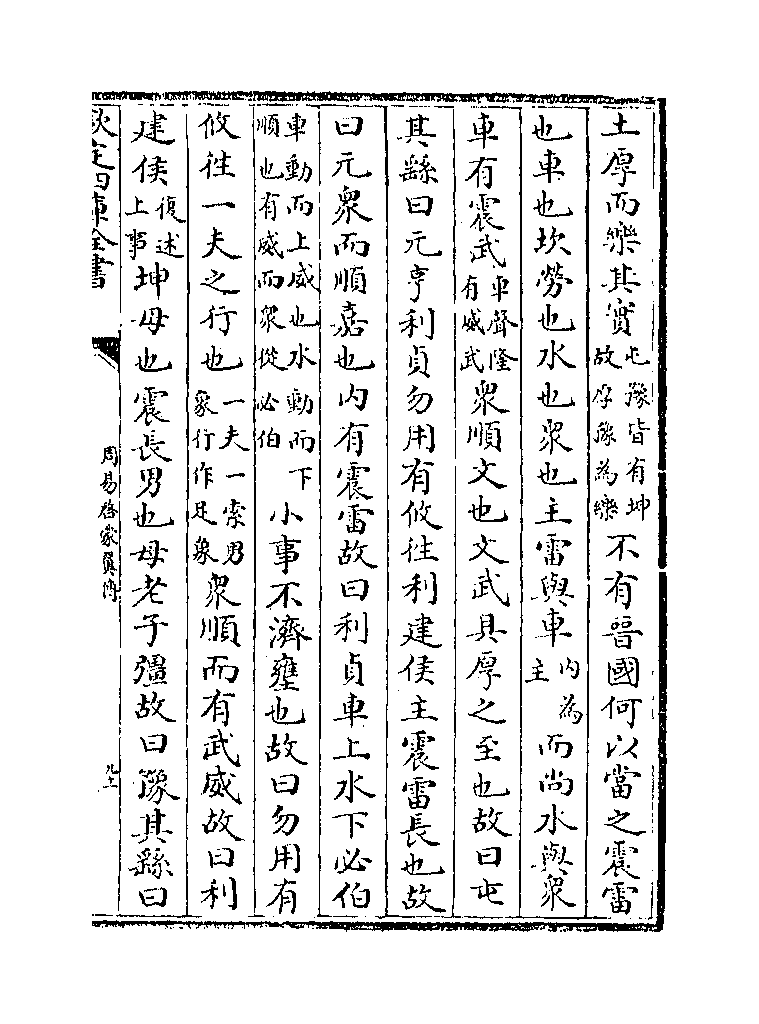 土厚而樂其實屯豫皆有坤故厚豫為樂不有晉國何以當之震雷
也車也坎勞也水也眾也主雷與車内為主而尚水與眾
車有震武車聲隆有威武眾順文也文武具厚之至也故曰屯
其繇曰元亨利貞勿用有攸往利建侯主震雷長也故
曰元眾而順嘉也内有震雷故曰利貞車上水下必伯
車動而上威也水動而下順也有威而眾從必伯小事不濟壅也故曰勿用有
攸往一夫之行也一夫一索男象行作足象眾順而有武威故曰利
建侯復述上事坤母也震長男也母老子彊故曰豫其繇曰
欽定四庫全書
周易啓蒙翼傳